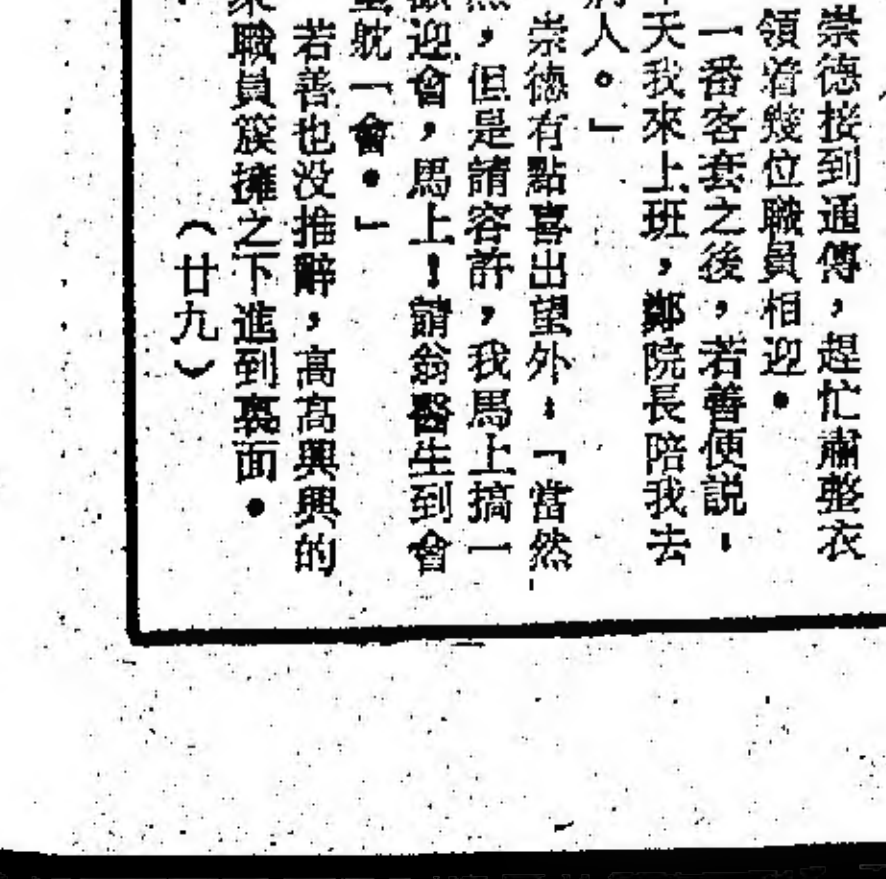 崇德接到通傳，趕忙肅整衣
領着幾位職員相迎．
一番客套之後，若善便説：
天我來上班，鄭院長陪我去
人。」
崇德有點喜出望外：「當然
，但是請容許，我馬上搞一
迎會，馬上！請翁醫生到會
就一會．」
若善也没推辭，高高興興的
職員簇擁之下進到裏面．
（廿九）